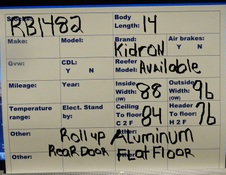 RB1482 Body Length: 14
Make: Model: Brand: Kidron Air brakes: Y N
Gvw: CDL: Y N Reefer Model: Available
Mileage: Year: Inside Width: (IW) 88 Outside Width: (OW) 96
Temperature range: Elect. Stand by: Ceiling To floor H 2 F 84 Header To floor H 2 F 76
Other: Roll up Aluminum
Other: Rear Door Flat Floor